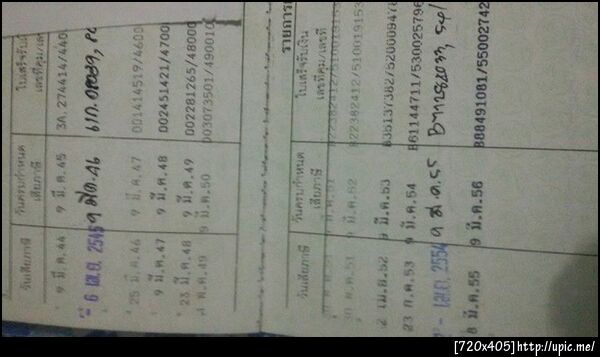 วันเสียภาษี วันครบกำหนดเสียภาษี ใบเสร็จรับเงิน เลขที่คุม/เลขที่
9 มี.ค.44 9 มี.ค.45 3ก.274414/440
- 6 เม.ย. 2545 9 มีค.46
25 มี.ค.46 9 มี.ค.47 001414519/4600
9 มี.ค.47 9 มี.ค.48 002451421/47000
23 มี.ค.48 9 มี.ค.49 002281265/48000
พ.ค.49 9 มี.ค.50 003073501/490010
รายการ
วันเสียภาษี วันครบกำหนดเสียภาษี ใบเสร็จรับเงิน เลขที่คุม/เลขที่
9 มี.ค.51 822382412/510019153
9 มี.ค.52 822382412/510019153
2 เม.ย.52 9 มี.ค.53 835137382/520009476
23 ก.ค.53 9 มี.ค.54 861144711/530025796
2554 9 มี.ค.55
8 มี.ค.55 9 มี.ค.56 888491081/55002742
[720x405]http://upic.me/